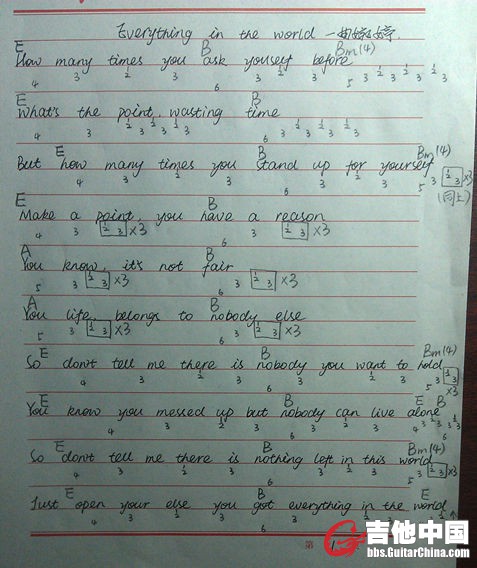 Everything in the world — 曲婉婷.
E B Bm(4)
How many times you ask youself before
4 3 1/2 3 6 3 1/2 3 3 1/2 3 1/2 3 1/2 3
E B
What's the point, wasting time
4 3 1/2 3 1/2 3 1/2 3 6 3 1/2 3 1/2 3 1/2 3
E B Bm(4)
But how many times you stand up for yourself
4 3 1/2 3 6 3 1/2 3 5 3 1/2 3 ×3
(同上)
E B
Make a point, you have a reason
4 3 1/2 3 ×3 6 3 1/2 3 ×3
A B
You know, it's not fair
5 3 1/2 3 ×3 6 3 1/2 3 ×3
A B
You life, belongs to nobody else
5 3 1/2 3 ×3 6 3 1/2 3 ×3
E B Bm(4)
So don't tell me there is nobody you want to hold
4 3 1/2 3 6 3 1/2 3 5 3 1/2 3 ×3
E B E B
You know you messed up but nobody can live alone
4 3 1/2 3 6 3 1/2 3 4 3 1/2 3 3 1/2 3 6
E B Bm(4)
So don't tell me there is nothing left in this world
4 3 1/2 3 6 3 1/2 3 5 3 1/2 3 ×3
E B E
Just open your else you got everything in the world
4 3 1/2 3 6 3 1/2 3
第
吉他中国
bbs.GuitarChina.com